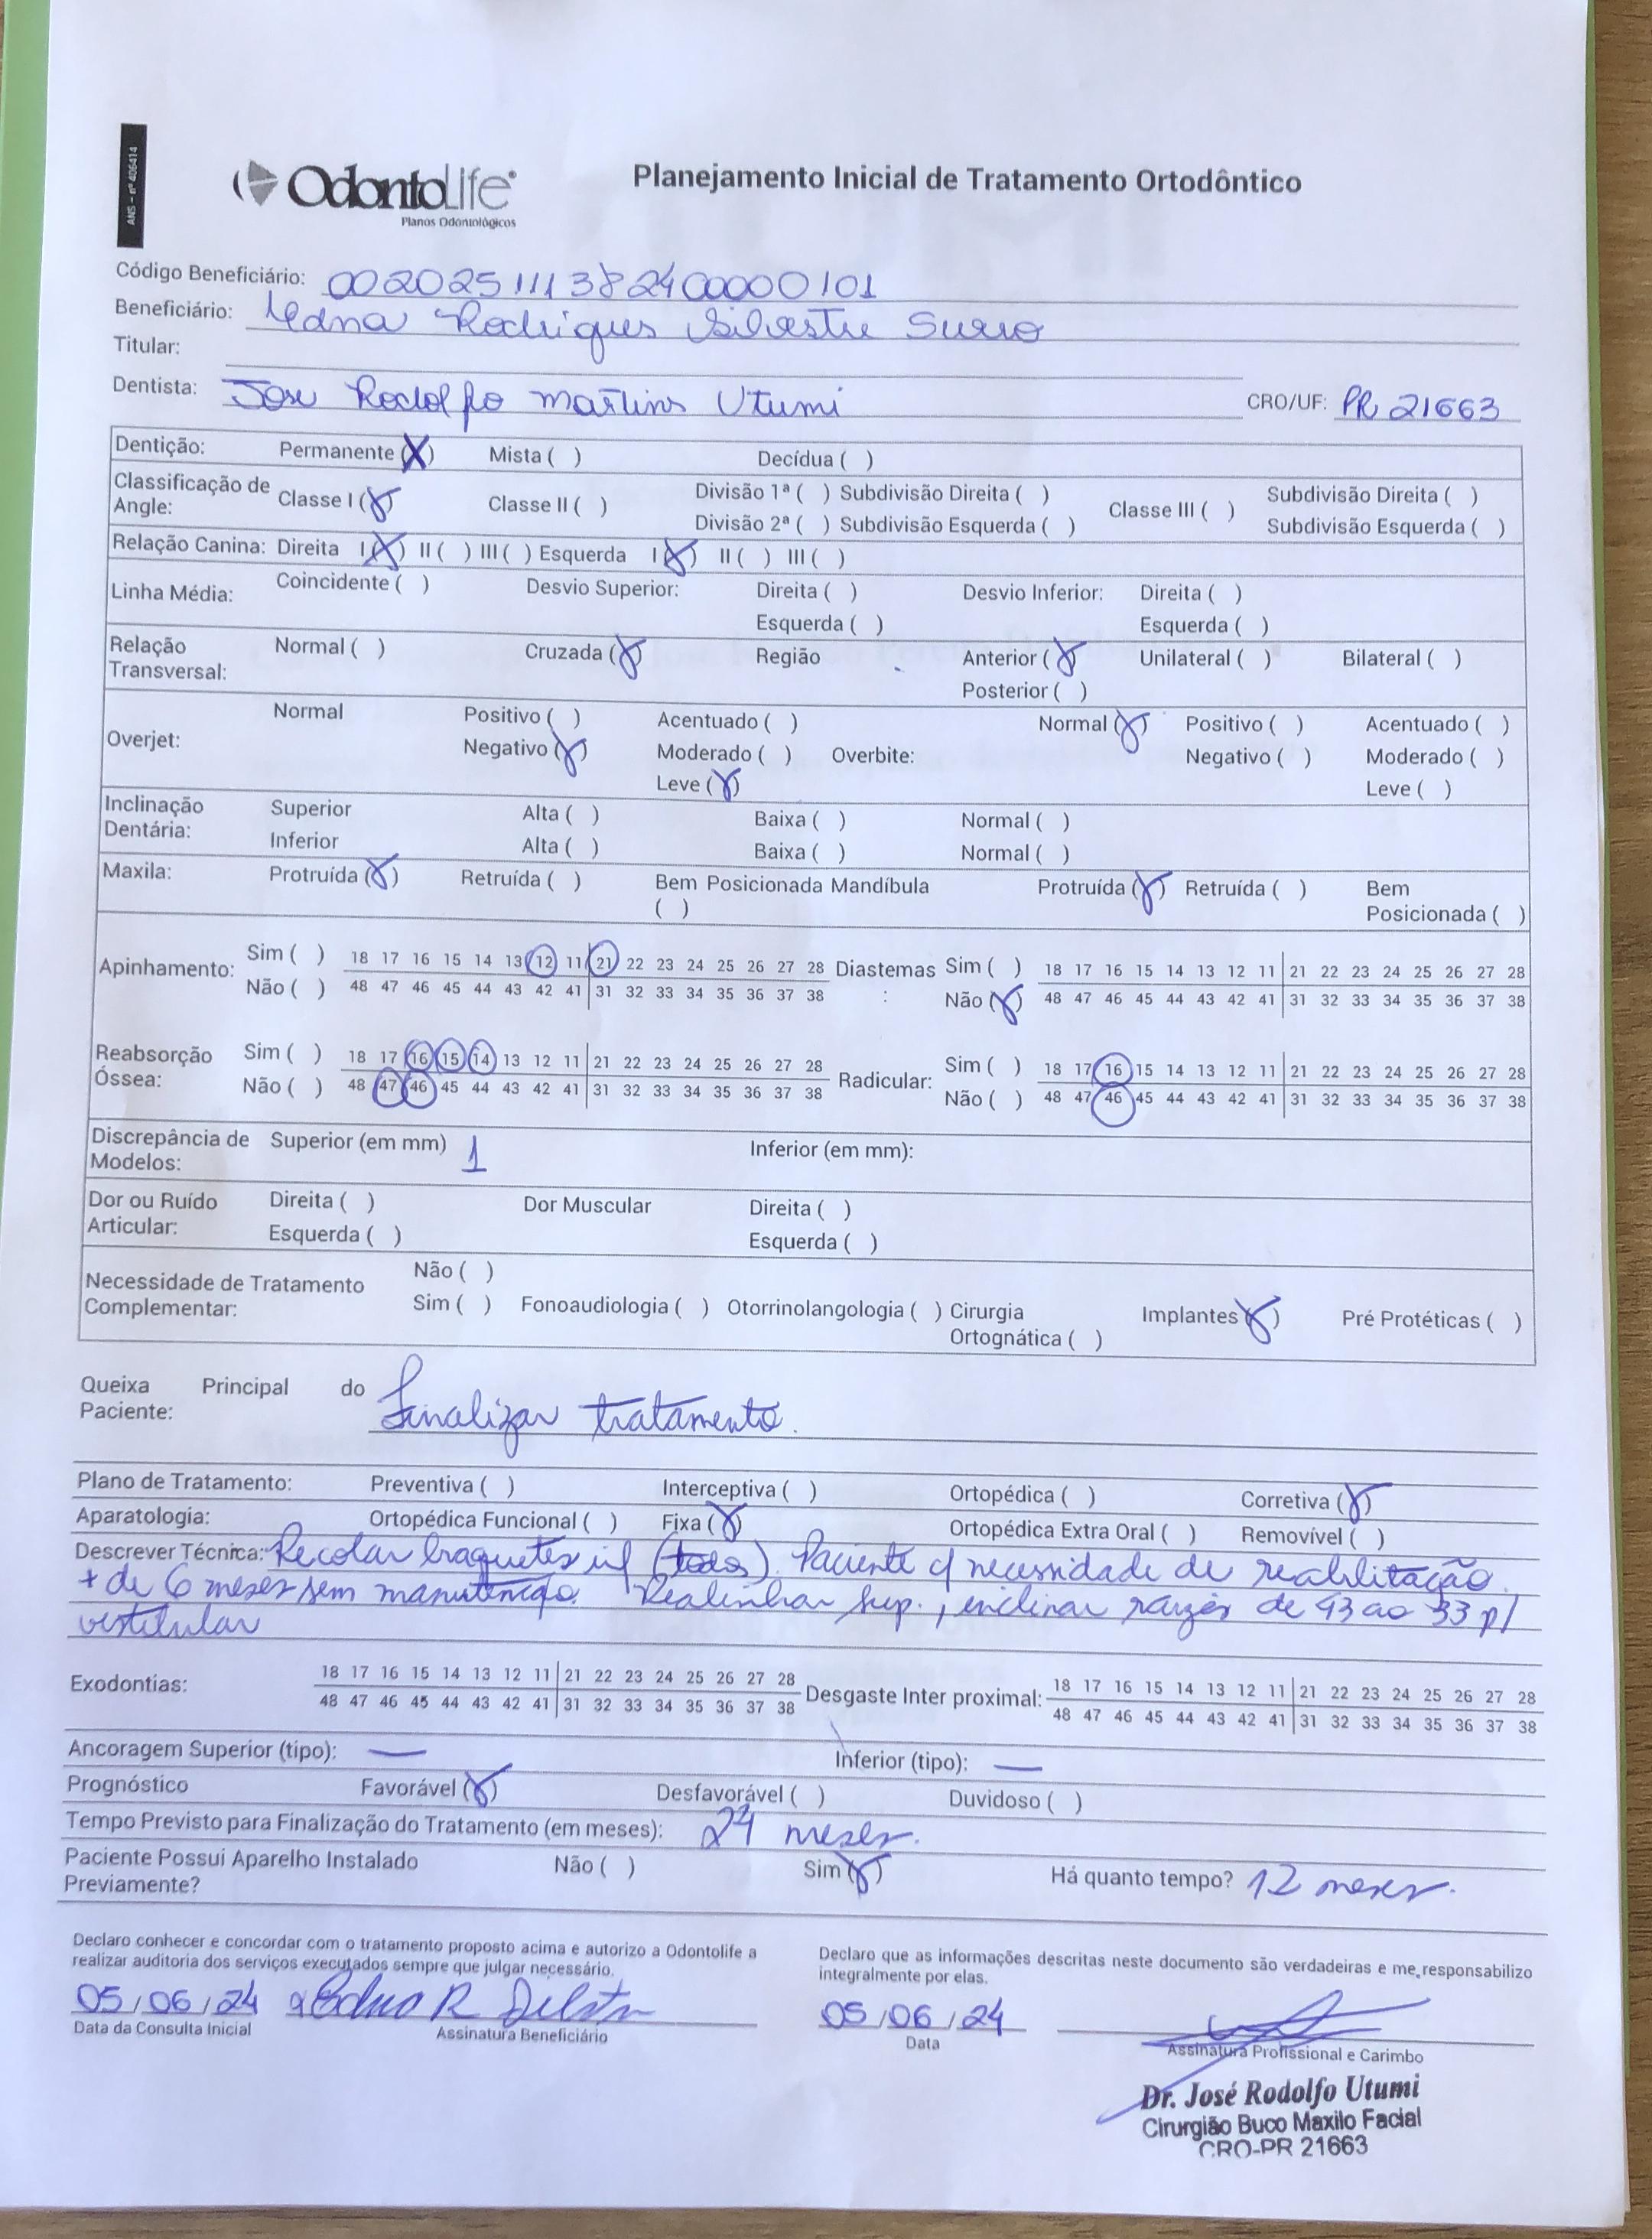 ANS - nº 406414
OdontoLife
Planos Odontológicos
Planejamento Inicial de Tratamento Ortodôntico
Código Beneficiário: 00202511138240000101
Beneficiário: Edna Rodrigues Silvestre
Titular:
Dentista: Jose Rodolfo Martins Utumi CRO/UF: PR 21663
Dentição: Permanente (X) Mista ( ) Decídua ( )
Classificação de Angle: Classe I (X) Classe II ( ) Divisão 1ª ( ) Subdivisão Direita ( ) Classe III ( ) Subdivisão Direita ( )
Divisão 2ª ( ) Subdivisão Esquerda ( ) Subdivisão Esquerda ( )
Relação Canina: Direita I (X) II ( ) III ( ) Esquerda I (X) II ( ) III ( )
Linha Média: Coincidente ( ) Desvio Superior: Direita ( ) Desvio Inferior: Direita ( )
Esquerda ( ) Esquerda ( )
Relação Transversal: Normal ( ) Cruzada (X) Região Anterior (X) Unilateral ( ) Bilateral ( )
Posterior ( )
Overjet: Normal Positivo ( ) Acentuado ( ) Normal (X) Positivo ( ) Acentuado ( )
Negativo (X) Moderado ( ) Overbite: Negativo ( ) Moderado ( )
Leve (X) Leve ( )
Inclinação Dentária: Superior Alta ( ) Baixa ( ) Normal ( )
Inferior Alta ( ) Baixa ( ) Normal ( )
Maxila: Protruída (X) Retruída ( ) Bem Posicionada ( ) Mandíbula Protruída (X) Retruída ( ) Bem Posicionada ( )
Apinhamento: Sim ( ) 18 17 16 15 14 13 12 11 21 22 23 24 25 26 27 28 Diastemas: Sim ( ) 18 17 16 15 14 13 12 11 21 22 23 24 25 26 27 28
Não ( ) 48 47 46 45 44 43 42 41 31 32 33 34 35 36 37 38 Não (X) 48 47 46 45 44 43 42 41 31 32 33 34 35 36 37 38
Reabsorção Óssea: Sim ( ) 18 17 16 15 14 13 12 11 21 22 23 24 25 26 27 28 Radicular: Sim ( ) 18 17 16 15 14 13 12 11 21 22 23 24 25 26 27 28
Não ( ) 48 47 46 45 44 43 42 41 31 32 33 34 35 36 37 38 Não ( ) 48 47 46 45 44 43 42 41 31 32 33 34 35 36 37 38
Discrepância de Modelos: Superior (em mm) 1 Inferior (em mm):
Dor ou Ruído Articular: Direita ( ) Dor Muscular Direita ( )
Esquerda ( ) Esquerda ( )
Necessidade de Tratamento Complementar: Não ( )
Sim ( ) Fonoaudiologia ( ) Otorrinolangologia ( ) Cirurgia Ortognática ( ) Implantes (X) Pré Protéticas ( )
Queixa Principal do Paciente: Finalizar tratamento.
Plano de Tratamento: Preventiva ( ) Interceptiva ( ) Ortopédica ( ) Corretiva (X)
Aparatologia: Ortopédica Funcional ( ) Fixa (X) Ortopédica Extra Oral ( ) Removível ( )
Descrever Técnica: Recolar braquetes inf (todos). Paciente c/ necessidade de reabilitação.
+ de 6 meses sem manutenção. Realinhar sup., inclinar raízes de 43 ao 33 p/
vestibular
Exodontias: 18 17 16 15 14 13 12 11 21 22 23 24 25 26 27 28 Desgaste Inter proximal: 18 17 16 15 14 13 12 11 21 22 23 24 25 26 27 28
48 47 46 45 44 43 42 41 31 32 33 34 35 36 37 38 48 47 46 45 44 43 42 41 31 32 33 34 35 36 37 38
Ancoragem Superior (tipo): — Inferior (tipo): —
Prognóstico Favorável (X) Desfavorável ( ) Duvidoso ( )
Tempo Previsto para Finalização do Tratamento (em meses): 24 meses.
Paciente Possui Aparelho Instalado Previamente? Não ( ) Sim (X) Há quanto tempo? 12 meses.
Declaro conhecer e concordar com o tratamento proposto acima e autorizo a Odontolife a
realizar auditoria dos serviços executados sempre que julgar necessário.
Declaro que as informações descritas neste documento são verdadeiras e me responsabilizo
integralmente por elas.
05/06/24 Edna R 05/06/24
Data da Consulta Inicial Assinatura Beneficiário Data Assinatura Profissional e Carimbo
Dr. José Rodolfo Utumi
Cirurgião Buco Maxilo Facial
CRO-PR 21663